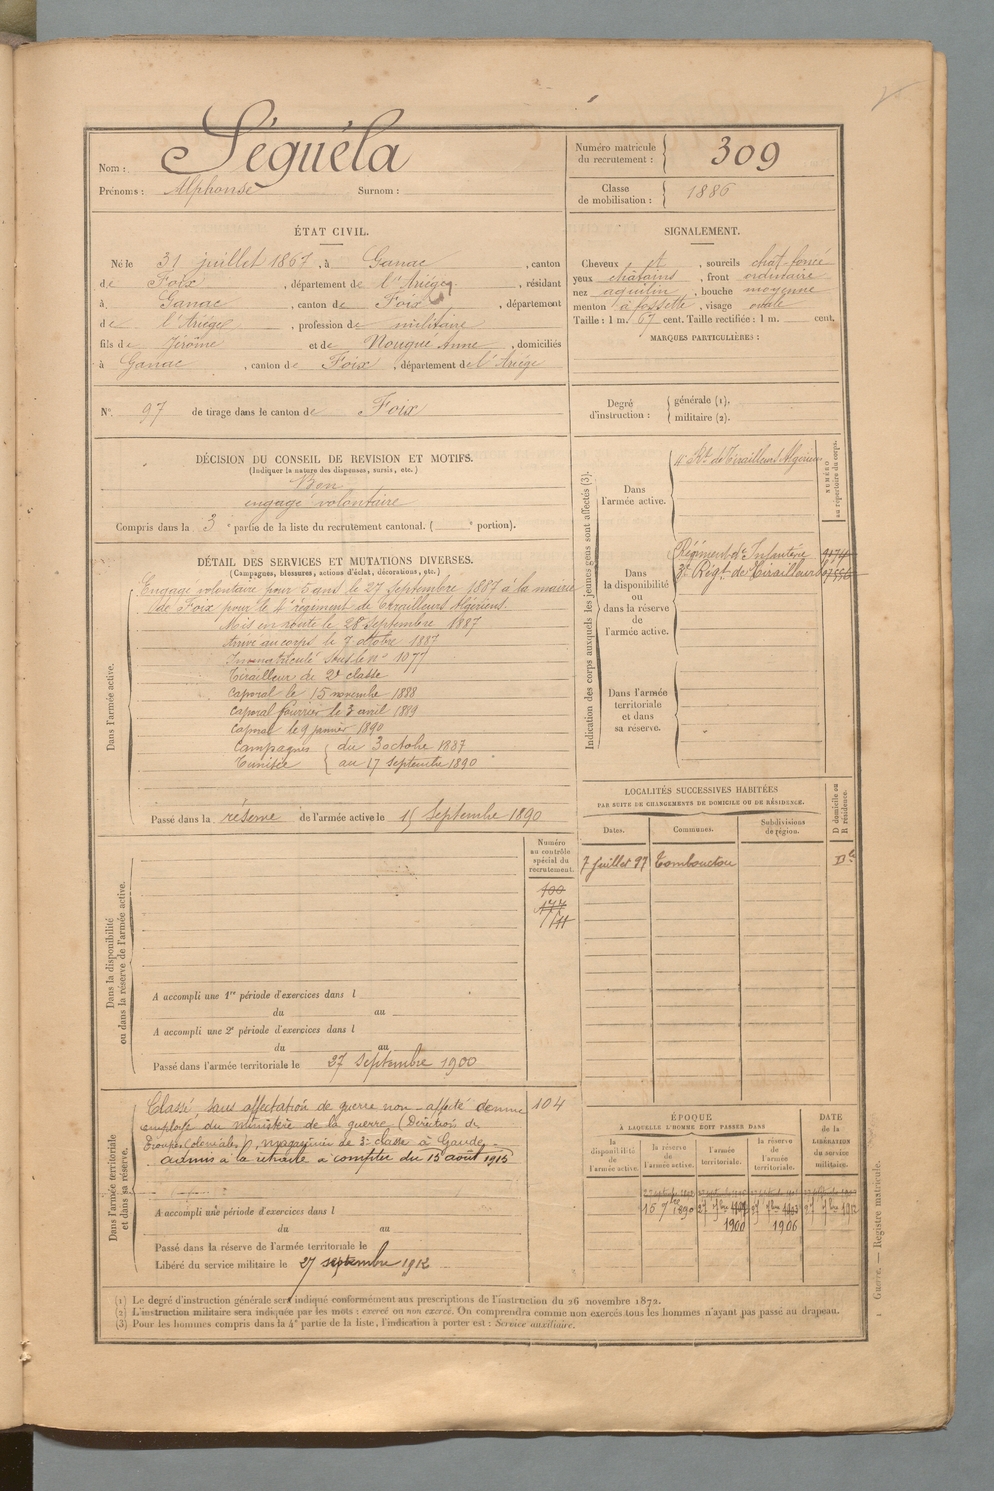 Nom : Séguéla
Prénoms : Alphonse Surnom :
Numéro matricule du recrutement : 309
Classe de mobilisation : 1886
ÉTAT CIVIL.
Né le 31 juillet 1867, à Ganac, canton
de Foix, département de l'Ariège, résidant
à Ganac, canton de Foix, département
de l'Ariège, profession de militaire
fils de Jérôme et de Nougué Anne, domiciliés
à Ganac, canton de Foix, département de l'Ariége
SIGNALEMENT.
Cheveux et, sourcils chât-foncé
yeux châtains, front ordinaire
nez aquilin, bouche moyenne
menton à fossette, visage ovale
Taille : 1 m. 67 cent. Taille rectifiée : 1 m. cent.
MARQUES PARTICULIÈRES :
N° 97 de tirage dans le canton de Foix
Degré d'instruction : générale (1).
militaire (2).
DÉCISION DU CONSEIL DE REVISION ET MOTIFS.
(Indiquer la nature des dispenses, sursis, etc.)
Bon
engagé volontaire
Compris dans la 3e partie de la liste du recrutement cantonal. ( e portion).
DÉTAIL DES SERVICES ET MUTATIONS DIVERSES.
(Campagnes, blessures, actions d'éclat, décorations, etc.)
Dans l'armée active.
Engagé volontaire pour 5 ans le 27 Septembre 1887 à la mairie
de Foix pour le 4e régiment de Tirailleurs Algériens.
Mis en route le 28 Septembre 1887
Arrivé au corps le 7 octobre 1887
Immatriculé sous le n° 1077
Tirailleur de 2e classe
Caporal le 15 novembre 1888
Caporal fourrier le 3 avril 1889
Caporal le 9 janvier 1890
Campagnes du 3 octobre 1887
Tunisie au 17 Septembre 1890
Passé dans la réserve de l'armée active le 15 Septembre 1890
Indication des corps auxquels les jeunes gens sont affectés (3).
NUMÉRO au répertoire du corps.
Dans l'armée active.
4e Rt de Tirailleurs Algériens
Dans la disponibilité ou dans la réserve de l'armée active.
Régiment d'Infanterie
3e Régt de Tirailleurs
Dans l'armée territoriale et dans sa réserve.
LOCALITÉS SUCCESSIVES HABITÉES
PAR SUITE DE CHANGEMENTS DE DOMICILE OU DE RÉSIDENCE.
Dates. Communes. Subdivisions de région. D domicile ou R résidence.
7 Juillet 97 Tombouctou D
Dans la disponibilité ou dans la réserve de l'armée active.
Numéro au contrôle spécial du recrutement.
A accompli une 1re période d'exercices dans l
du au
A accompli une 2e période d'exercices dans l
du au
Passé dans l'armée territoriale le 27 Septembre 1900
Dans l'armée territoriale et dans sa réserve.
Classé sans affectation de guerre non-affecté comme 104
employé du Ministère de la guerre (Direction des
Troupes Coloniales), magasinier de 3e classe à
admis à la retraite à compter du 15 août 1913
A accompli une période d'exercices dans l
du au
Passé dans la réserve de l'armée territoriale le
Libéré du service militaire le 27 septembre 1912
ÉPOQUE
À LAQUELLE L'HOMME DOIT PASSER DANS
la disponibilité de l'armée active.
la réserve de l'armée active.
l'armée territoriale.
la réserve de l'armée territoriale.
DATE de la LIBÉRATION du service militaire.
15 7bre 1890
1900 1906
(1) Le degré d'instruction générale sera indiqué conformément aux prescriptions de l'instruction du 26 novembre 1872.
(2) L'instruction militaire sera indiquée par les mots : exercé ou non exercé. On comprendra comme non exercés tous les hommes n'ayant pas passé au drapeau.
(3) Pour les hommes compris dans la 4e partie de la liste, l'indication à porter est : Service auxiliaire.
1 Guerre. — Registre matricule.